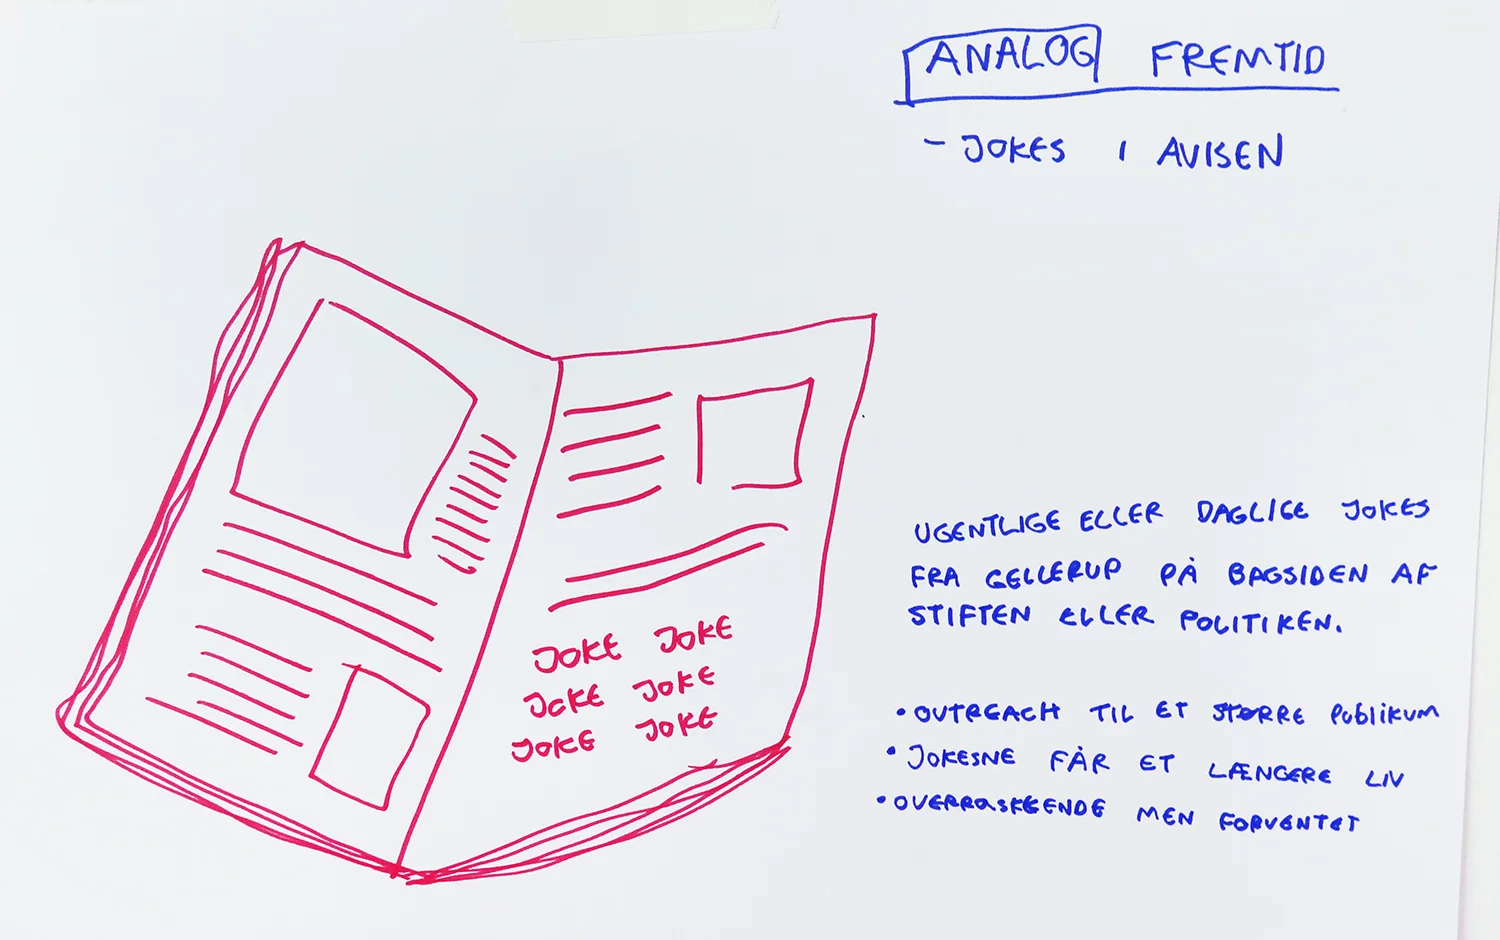 ANALOG FREMTID
- JOKES I AVISEN
UGENTLIGE ELLER DAGLIGE JOKES
FRA GELLERUP PÅ BAGSIDEN AF
STIFTEN ELLER POLITIKEN.
JOKE JOKE
JOKE JOKE
JOKE JOKE
• OUTREACH TIL ET STØRRE PUBLIKUM
• JOKESNE FÅR ET LÆNGERE LIV
• OVERRASKEENDE MEN FORVENTET